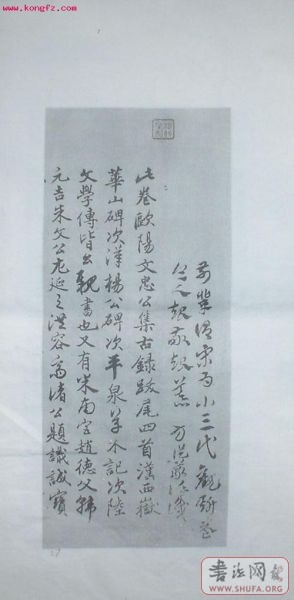 www.kongfz.com
前輩謂宋為小三代觀斯
令人起敬起慕
此卷歐陽文忠公集古錄跋尾四首漢西嶽
華山碑次漢楊公碑次平泉草木記次陸
文學傳皆公親書也又有米南宮趙德父韓
元吉朱文公尤延之洪容齋諸公題識誠寶
書法网
WWW.SHUFA.ORG